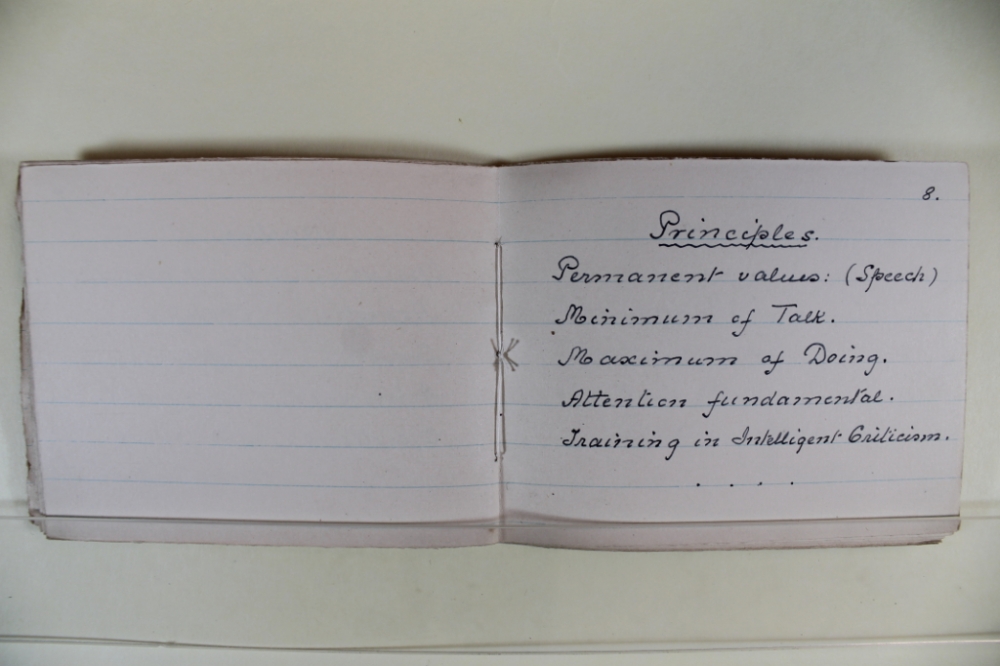 8.
Principles.
Permanent values: (Speech)
Minimum of Talk.
Maximum of Doing.
Attention fundamental.
Training in Intelligent Criticism.
. . . .